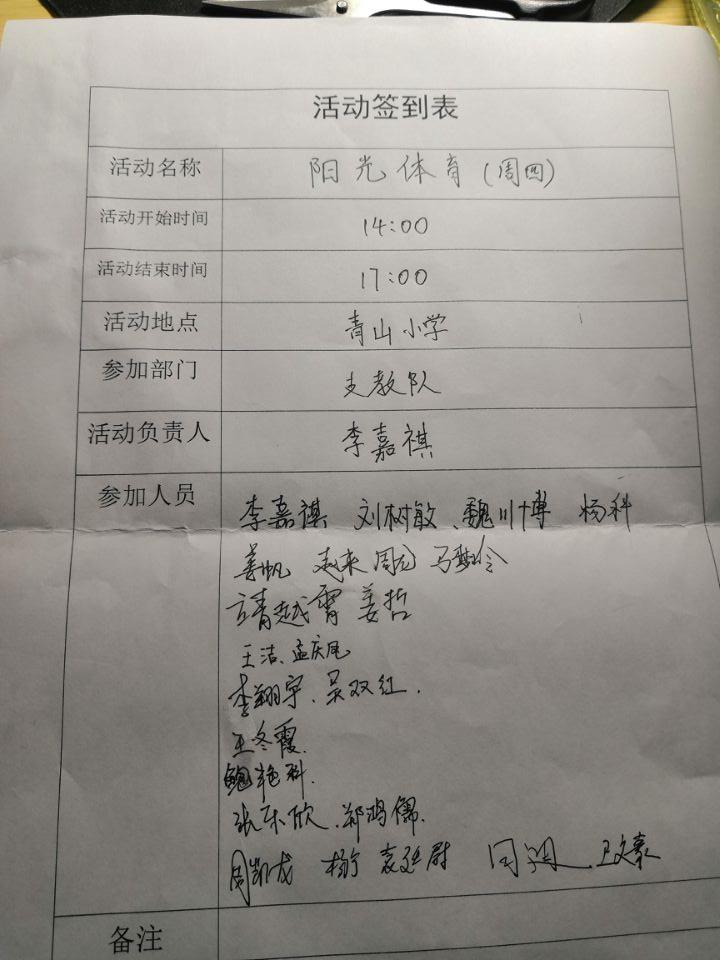 活动签到表
活动名称 阳光体育(周四)
活动开始时间 14:00
活动结束时间 17:00
活动地点 青山小学
参加部门 支教队
活动负责人 李嘉祺
参加人员 李嘉祺 刘树敏、魏川博 杨科
姜帆
越霄 姜哲
王洁、孟庆尾
李翔宇、吴双红.
王冬霞.
鲍艳科.
张乐欣、郑鸿儒.
周凯龙 杨宁 袁廷尉
备注